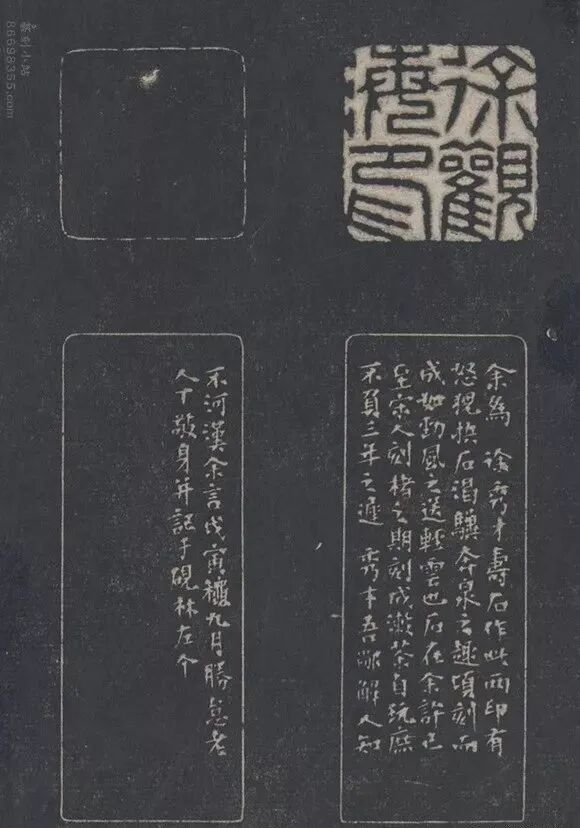 篆刻小站
86698355.com
徐觀
海印
余爲 徐秀才壽石作此兩印有
怒猊抉石渴驥奔泉之趣頃刻而
成如勁風之送輕雲也石在余許已
至宋人刻楮之期刻成茶自玩庶
不負三年之遲 秀才吾解人知
不河漢余言戊寅穐九月勝怠老
人丁敬身并記于硯林左个